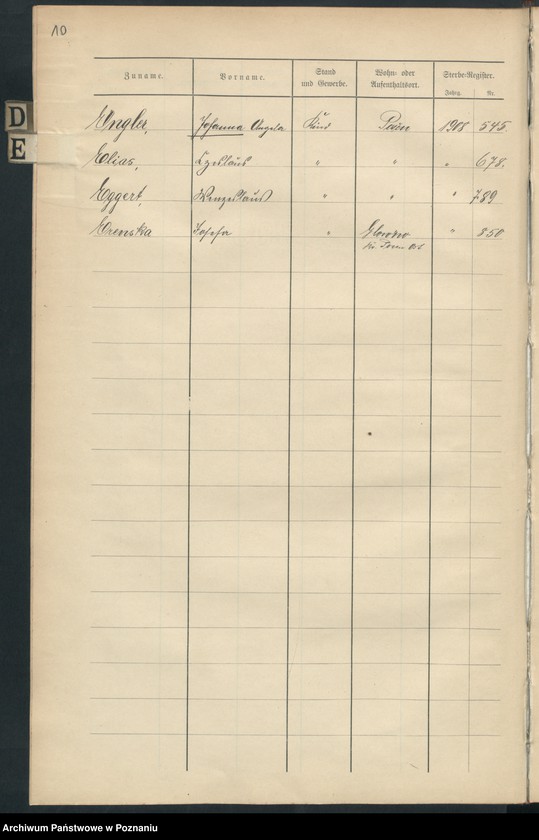 10
Zuname. Vorname. Stand und Gewerbe. Wohn- oder Aufenthaltsort. Sterbe-Register.
Jahrg. Nr.
D
E
Engler, Johanna Angela Kind Posen 1908 545.
Elias, " " " 678.
Eggert, Wenzeslaus " " " 789
Josefa " Glowno " 850
Kr. Posen Ost
Archiwum Państwowe w Poznaniu